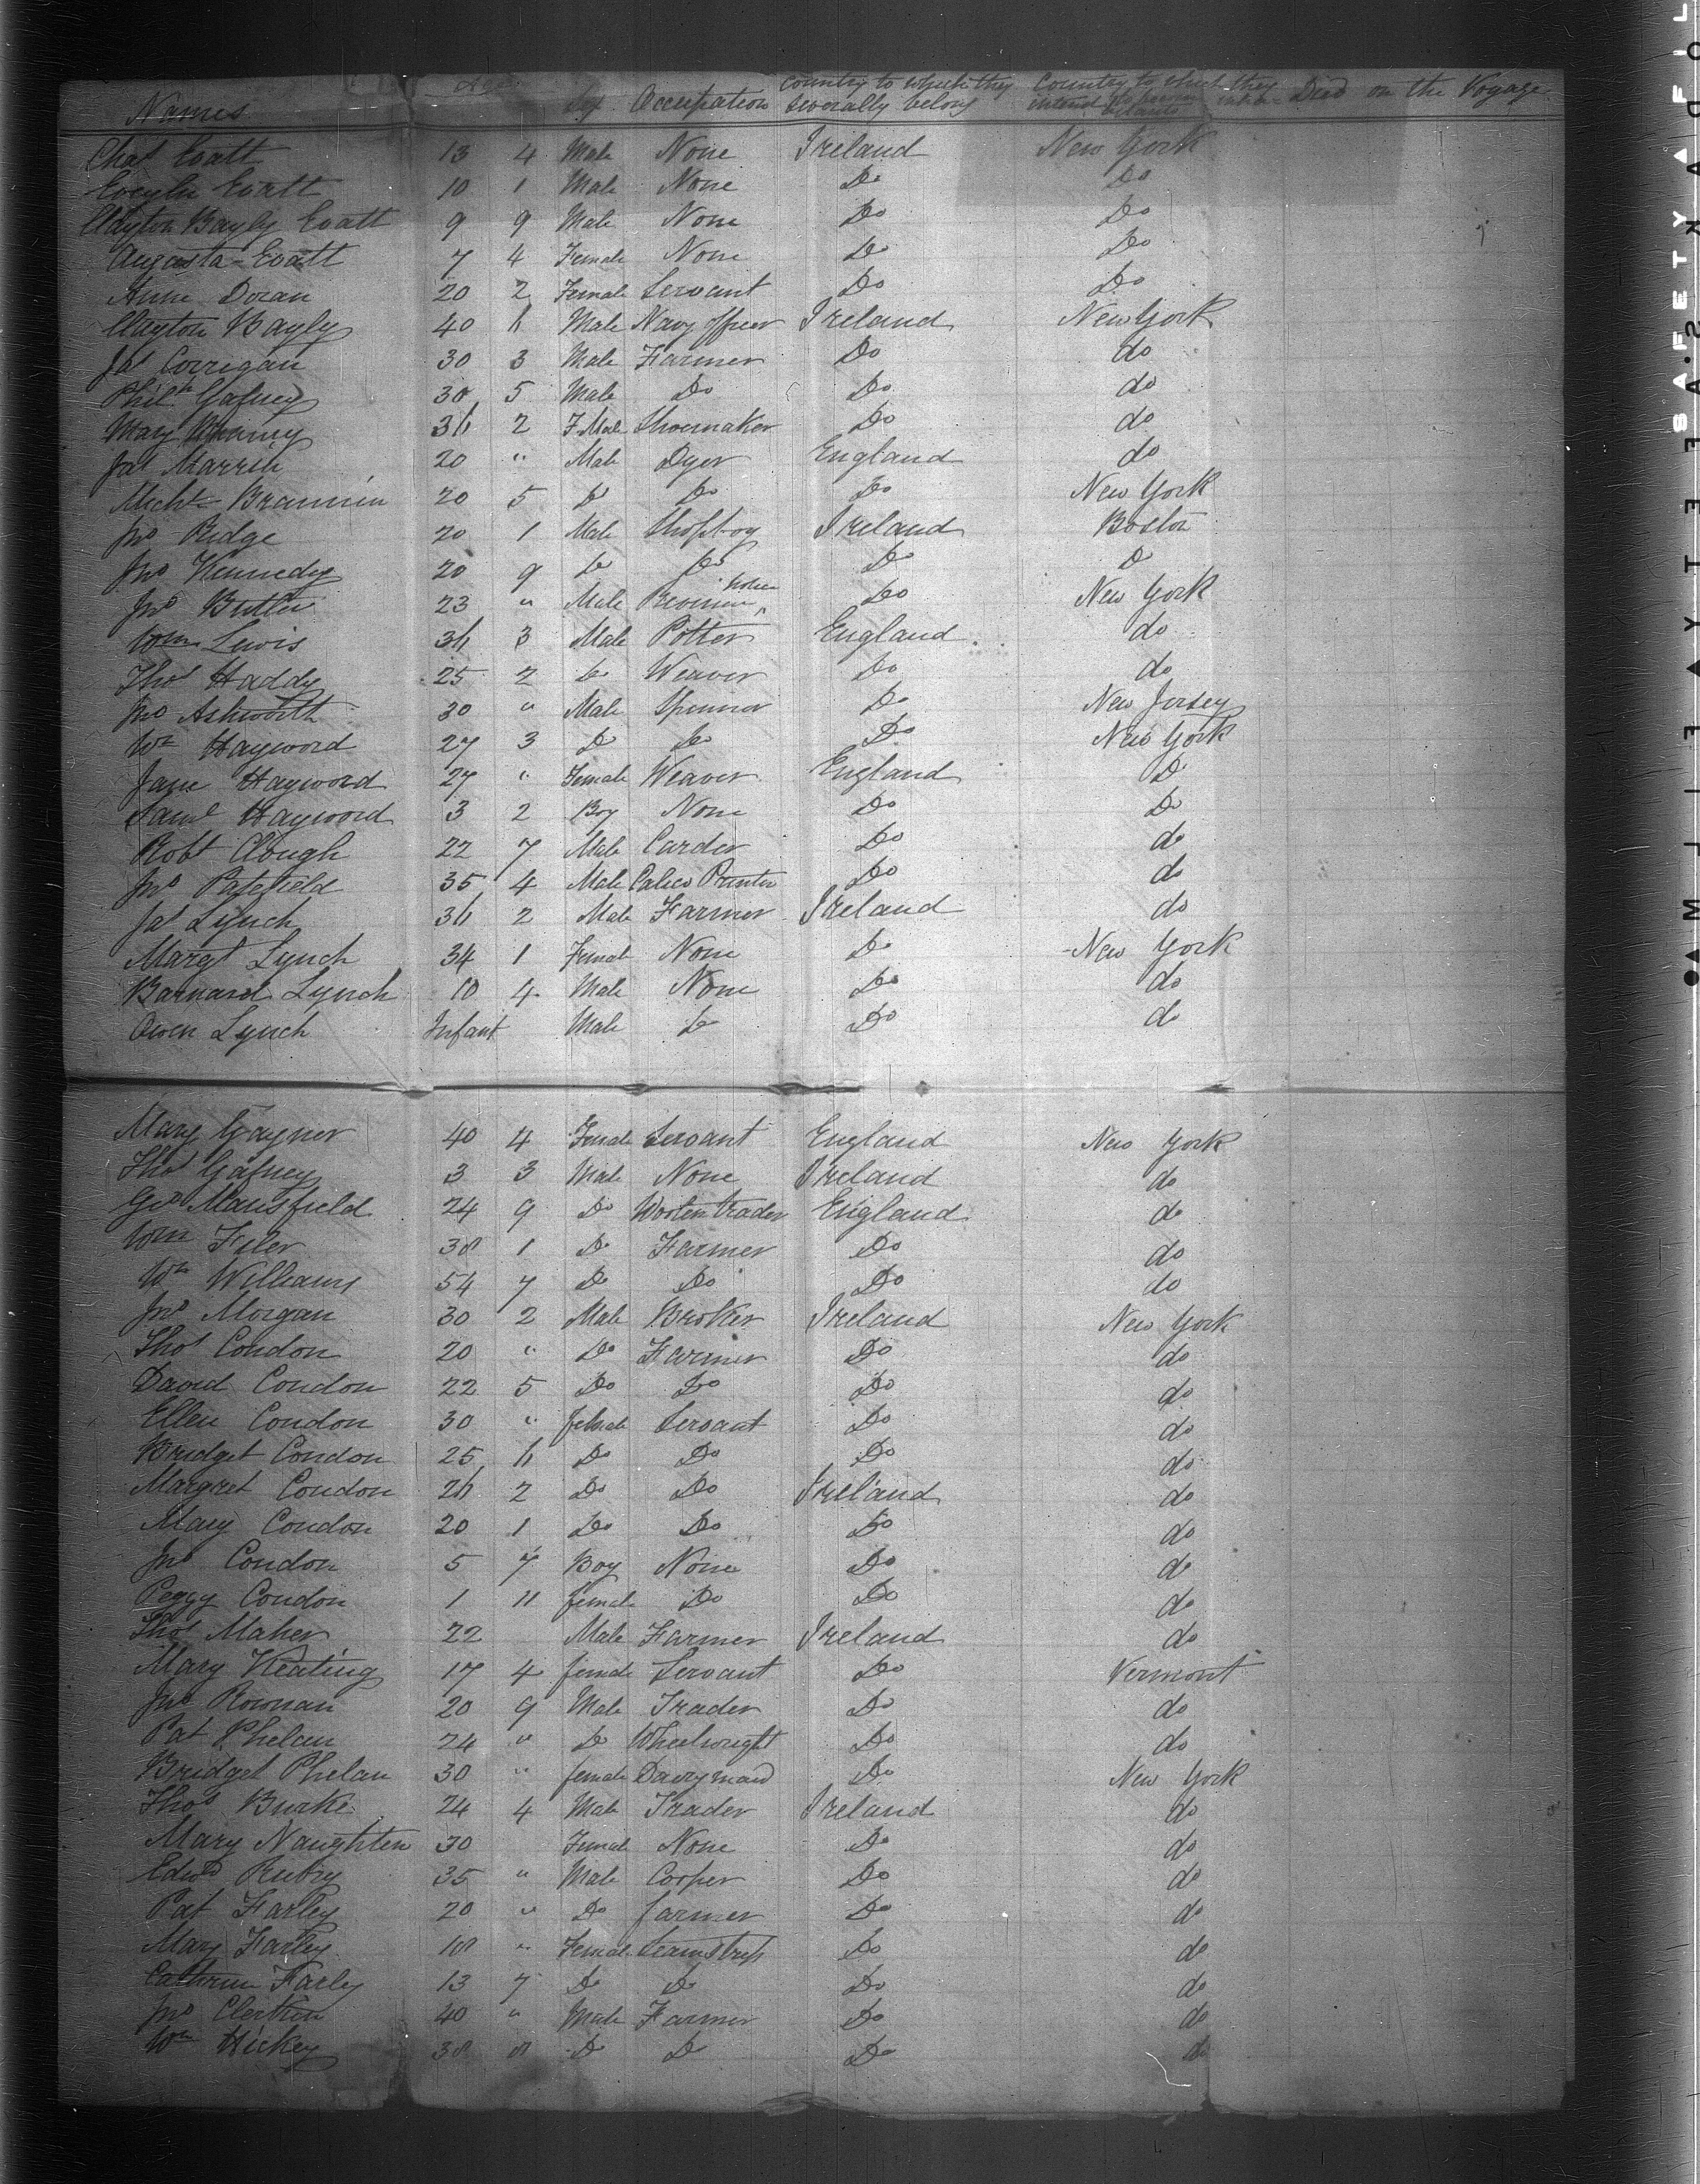 Names Age Sex Occupation Country to which they severally belong Country to which they intend to become inhabitants Died on the Voyage
Chas Evatt 13 4 Male None Ireland New York
Evelyn Evatt 10 1 Male None Do Do
Clayton Bayly Evatt 9 9 Male None Do Do
Augusta Evatt 7 4 Female None Do Do
Anne Doran 20 2 Female Servant Do Do
Clayton Bayly 40 6 Male Navy officer Ireland New York
Jas Corrigan 30 3 Male Farmer Do do
Phil Gafney 30 5 Male Do Do do
Mary 36 2 F Male Shoemaker Do do
Jas 20 " Male Dyer England do
Michl Brannin 20 5 Do Do Do New York
Jno Ridge 20 1 Male Shopboy Ireland Boston
Jno Kennedy 20 9 Do Do Do Do
Jno Butler 23 " Male Do New York
Wm Lewis 36 3 Male Potter England do
Thos Haddy 25 2 Do Weaver Do do
Jno Ashworth 30 " Male Spinner Do New Jersey
Wm Hayword 27 3 Do Do Do New York
Jane Hayword 27 " Female Weaver England Do
Saml Hayword 3 2 Boy None Do Do
Robt Clough 22 7 Male Carder Do do
Jno Patefield 35 4 Male Calico Printer Do do
Jas Lynch 36 2 Male Farmer Ireland do
Margt Lynch 34 1 Femal None Do New York
Barnard Lynch 10 4 Male None Do do
Owen Lynch Infant Male Do Do do
Mary Gayner 40 4 Female Servant England New York
Thos Gafney 3 3 Male None Ireland do
Geo Mansfield 24 9 Do trader England do
Wm Filer 38 1 Do Farmer Do do
Wm Williams 54 7 Do Do Do do
Jno Morgan 30 2 Male Broker Ireland New York
Thos Condon 20 " Do Farmer Do do
David Condon 22 5 Do Do Do do
Ellen Condon 30 " female Servant Do do
Bridget Condon 25 6 Do Do Do do
Margret Condon 26 2 Do Do Ireland do
Mary Condon 20 1 Do Do Do do
Jno Condon 5 7 Boy None Do do
Peggy Condon 1 11 female Do Do do
Thos Maher 22 Male Farmer Ireland do
Mary Keating 17 4 female Servant Do Vermont
Jno Rownan 20 9 Male Trader Do do
Pat Phelan 24 " Do Wheelwright Do do
Bridget Phelan 30 " female Dairymaid Do New York
Thos Burke 24 4 Male Trader Ireland do
Mary Naughten 30 Female None Do do
Edwd Rubry 35 " Male Cooper Do do
Pat Farley 20 " Do farmer Do do
Mary Farley 18 " Female Seamstress Do do
Cathrin Farly 13 7 Do Do Do do
Jno Clerkin 40 " Male Farmer Do do
Wm Hickey 38 8 Do Do Do do
SAFETY